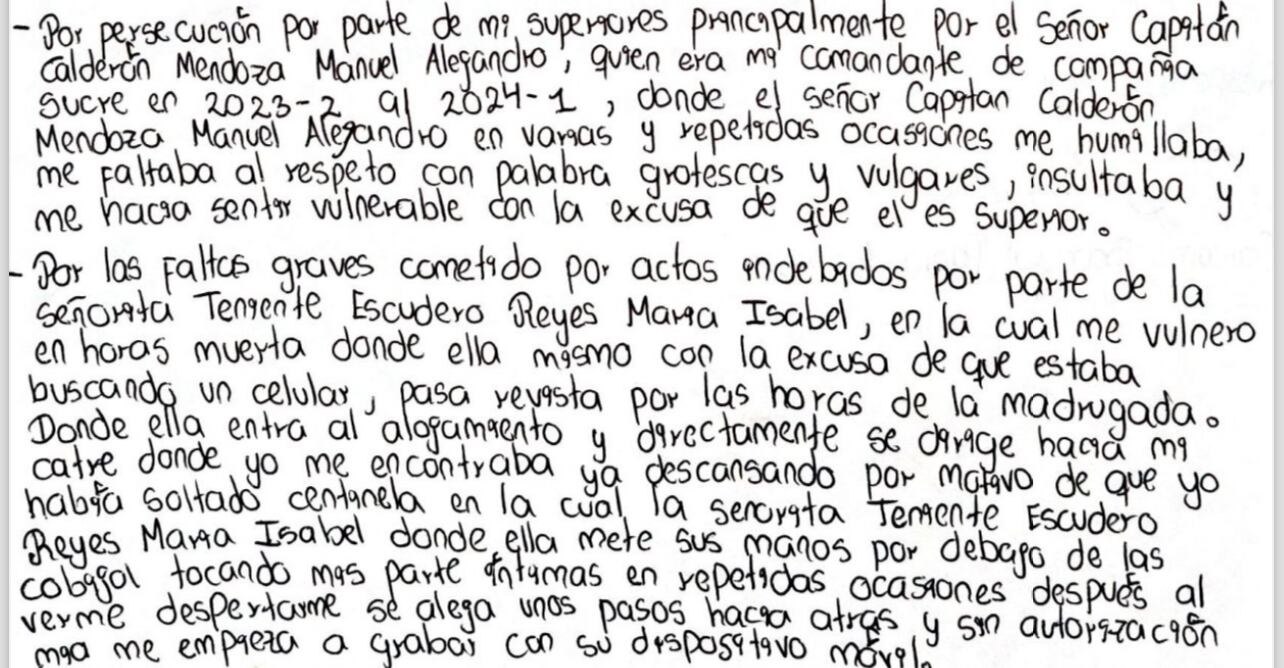 - Por persecución por parte de mi superiores principalmente por el Señor Capitán
Calderón Mendoza Manuel Alejandro, quien era mi comandante de compañia
Sucre en 2023-2 al 2024-1, donde el señor Capitan Calderón
Mendoza Manuel Alejandro en varias y repetidas ocasiones me humillaba,
me faltaba al respeto con palabra grotescas y vulgares, insultaba y
me hacia sentir vulnerable con la excusa de que el es superior.
- Por las faltas graves cometido por actos indebidos por parte de la
señorita Teniente Escudero Reyes Maria Isabel, en la cual me vulnero
en horas muerta donde ella mismo con la excusa de que estaba
buscando un celular, pasa revista por las horas de la madrugada.
Donde ella entra al alojamiento y directamente se dirige hacia mi
catre donde yo me encontraba ya descansando por motivo de que yo
había soltado centinela en la cual la senorita Teniente Escudero
Reyes Maria Isabel donde ella mete sus manos por debajo de las
cobijal tocando mis parte íntimas en repetidas ocasiones después al
verme despertarme se aleja unos pasos hacia atras y sin autorización
mia me empieza a grabar con su dispositivo móvil.